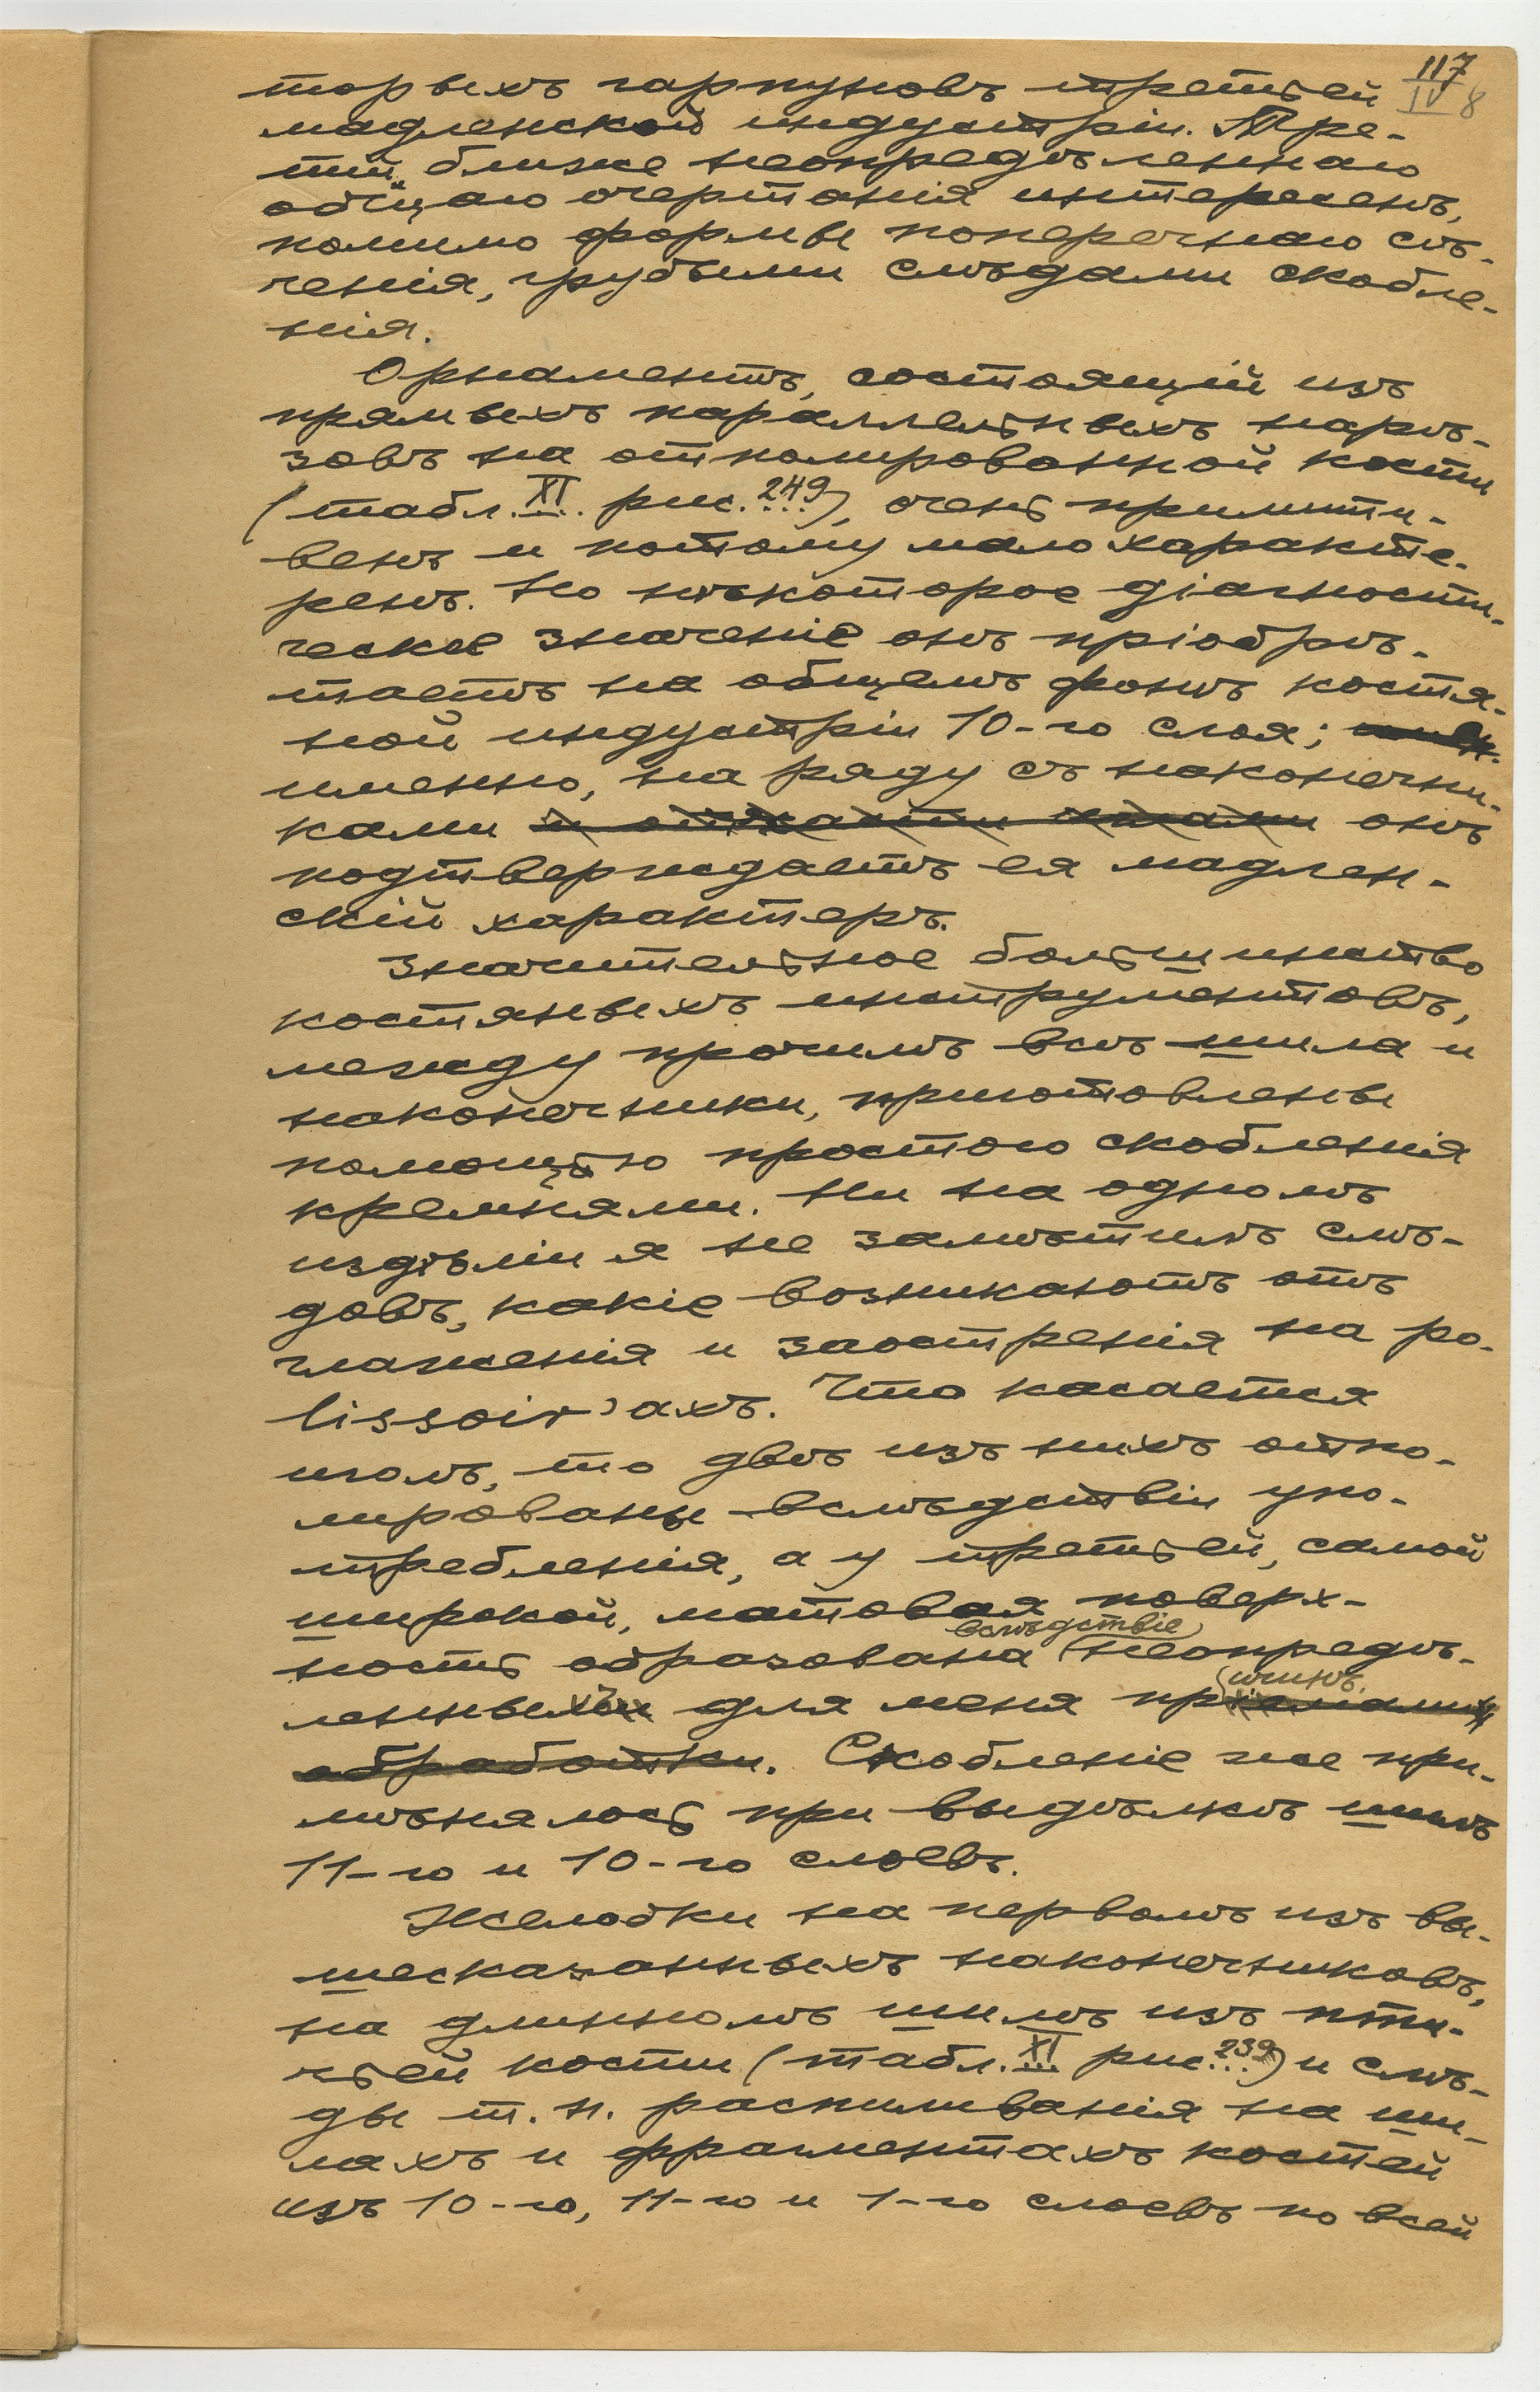 117
IV 8
торыхъ гарпуновъ третьей
мадленской индустріи. Тре-
тій, ближе неопредѣленнаго
общаго очертанія интересенъ,
помимо формы поперечнаго сѣ-
ченія, грубыми слѣдами скобле-
нія.
Орнаментъ, состоящій изъ
прямыхъ параллельныхъ нарѣ-
зовъ на отполированной кости
(табл. XI. рис. 249), очень примити-
венъ и потому мало характе-
ренъ. Но нѣкоторое діагности-
ческое значеніе онъ пріобрѣ-
таетъ на общемъ фонѣ костя-
ной индустріи 10-го слоя;
именно, на ряду съ наконечни-
ками онъ
подтверждаетъ ея мадлен-
скій характеръ.
Значительное большинство
костяныхъ инструментовъ,
между прочимъ всѣ шила и
наконечники, приготовлены
помощью простого скобленія
кремнями. Ни на одномъ
издѣліи я не замѣтилъ слѣ-
довъ, какіе возникаютъ отъ
глаженія и заостренія на po-
lissoir'ахъ. Что касается
иголъ, то двѣ изъ нихъ отпо-
лированы вслѣдствіи упо-
требленія, а у третьей, самой
широкой, матовая поверх-
вслѣдствіе
ность образована неопредѣ-
ленныхъ для меня при
чинъ.
обработки. Скобленіе же при-
мѣнялось при выдѣлкѣ шилъ
11-го и 10-го слоевъ.
Желобки на первомъ изъ вы-
шесказанныхъ наконечниковъ,
на длинномъ шилѣ изъ пти-
чьей кости (табл. XI рис. 239) и слѣ-
ды т. н. распиливанія на ши-
лахъ и фрагментахъ костей
изъ 10-го, 11-го и 1-го слоевъ по всей